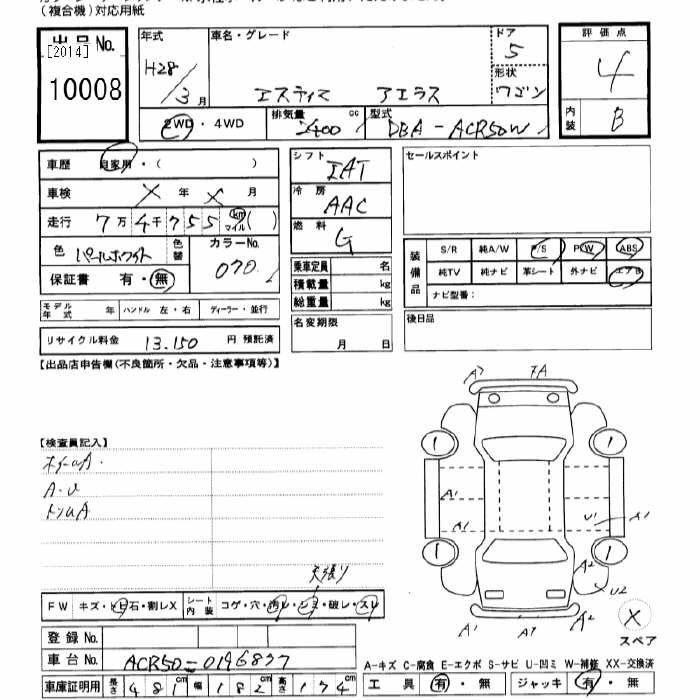 (複合機)対応用紙
出品No.
[2014]
10008
年式 H28/3月
車名・グレード エスティマ アエラス
ドア 5
形状 ワゴン
評価点 4
内装 B
2WD・4WD
排気量 2400 cc
型式 DBA-ACR50W
車歴 自家用・( )
車検 X 年 X 月
走行 7万4千755 km マイル( )
色 パールホワイト
色替
カラーNo. 070
保証書 有・無
シフト IAT
冷房 AAC
燃料 G
乗車定員 名
積載量 kg
総重量 kg
名変期限 月 日
セールスポイント
装備品
S/R 純A/W P/S PW ABS
純TV 純ナビ 革シート 外ナビ エアB
ナビ型番:
後日品
モデル年式 ハンドル 左・右 ディーラー・並行
リサイクル料金 13,150 円 預託済
【出品店申告欄(不良箇所・欠品・注意事項等)】
【検査員記入】
ホイールA.
A・U
トソムA
天張り
FW キズ・トビ石・割レX
シート内装 コゲ・穴・汚レ・シミ・破レ・スレ
登録No.
車台No. ACR50-0196837
車庫証明用 長さ 481cm 幅 182cm 高さ 174cm
A' FA
A' A'
U1 A'
A2
U2
A' A2
X
スペア
A-キズ C-腐食 E-エクボ S-サビ U-凹ミ W-補修 XX-交換済
工具 有・無 ジャッキ 有・無